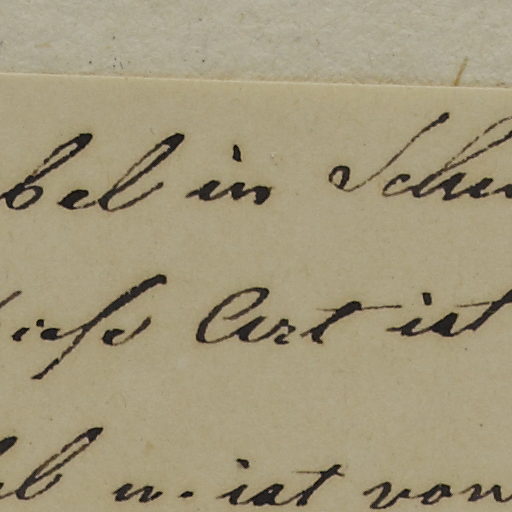 bel in Schw
diese Art ist
el u. ist von